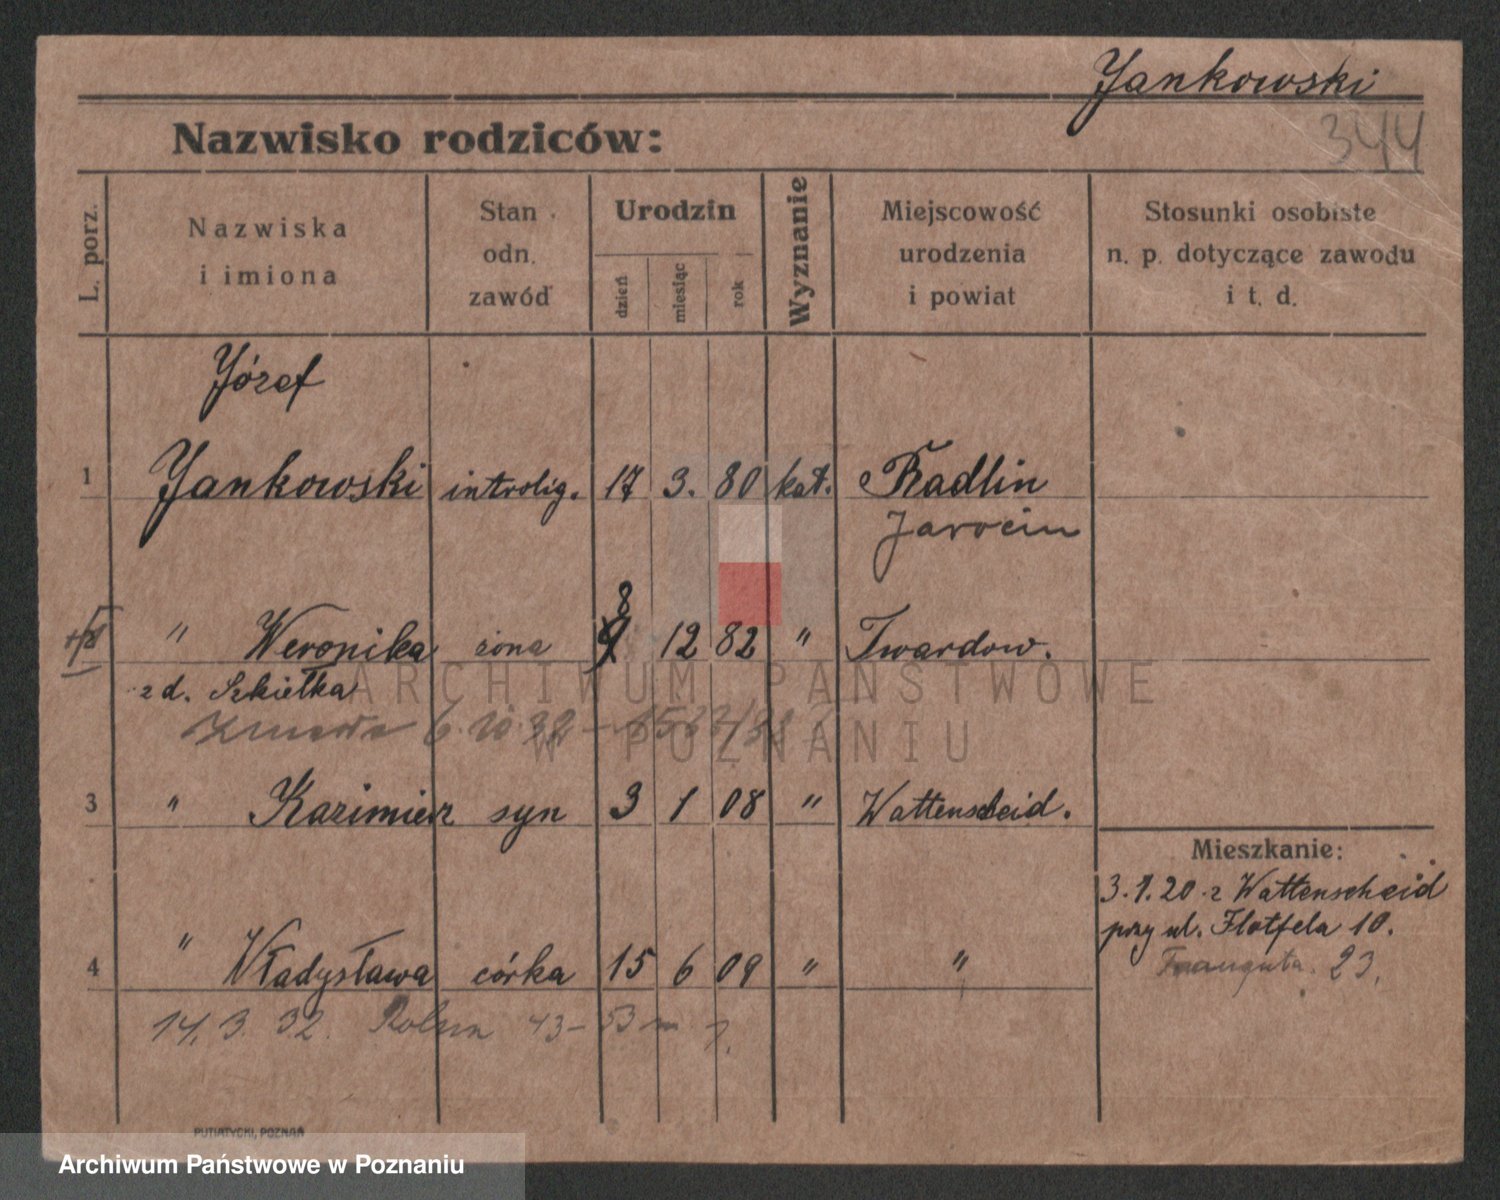 Jankowski
344
Nazwisko rodziców:
L. porz.
Nazwiska
i imiona
Stan
odn.
zawód
Urodzin
dzień
miesiąc
rok
Wyznanie
Miejscowość
urodzenia
i powiat
Stosunki osobiste
n. p. dotyczące zawodu
i t. d.
Józef
1 Jankowski introlig. 17 3. 80 kat. Radlin
Jarocin
8
" Weronika żona 12 82 " Twardow.
z d. Szkiełka
Zmarła 6.10.32
ARCHIWUM PAŃSTWOWE
W POZNANIU
3 " Kazimierz syn 3 1 08 " Wattenscheid.
Mieszkanie:
3.1.20 z Wattenscheid
przy ul. Flotfela 10.
Trauguta 23.
4 " Władysława córka 15 6 09 " "
14. 3. 32.
PUTIATYCKI, POZNAŃ
Archiwum Państwowe w Poznaniu